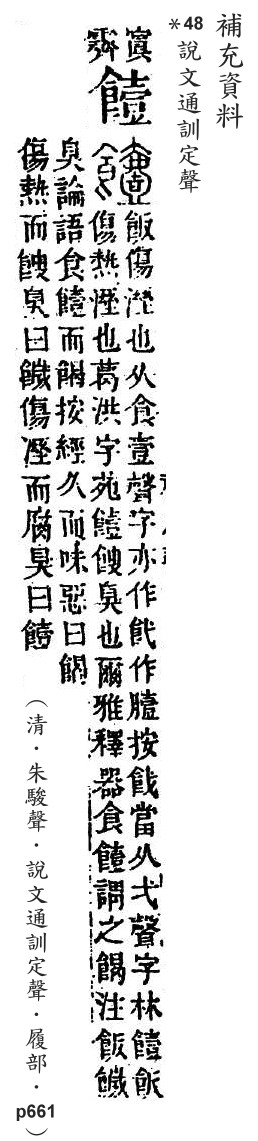 補充資料
*48 說文通訓定聲
饐 飯傷溼也从食壹聲字亦作䬥作膯按䬥當从弋聲字林饐飯
傷熱溼也葛洪字苑饐餿臭也爾雅釋器食饐謂之餲注飯饖
臭論語食饐而餲按經久而味惡曰餲
傷熱而餿臭曰饖傷溼而腐臭曰饐
(清．朱駿聲．說文通訓定聲．履部．p661)